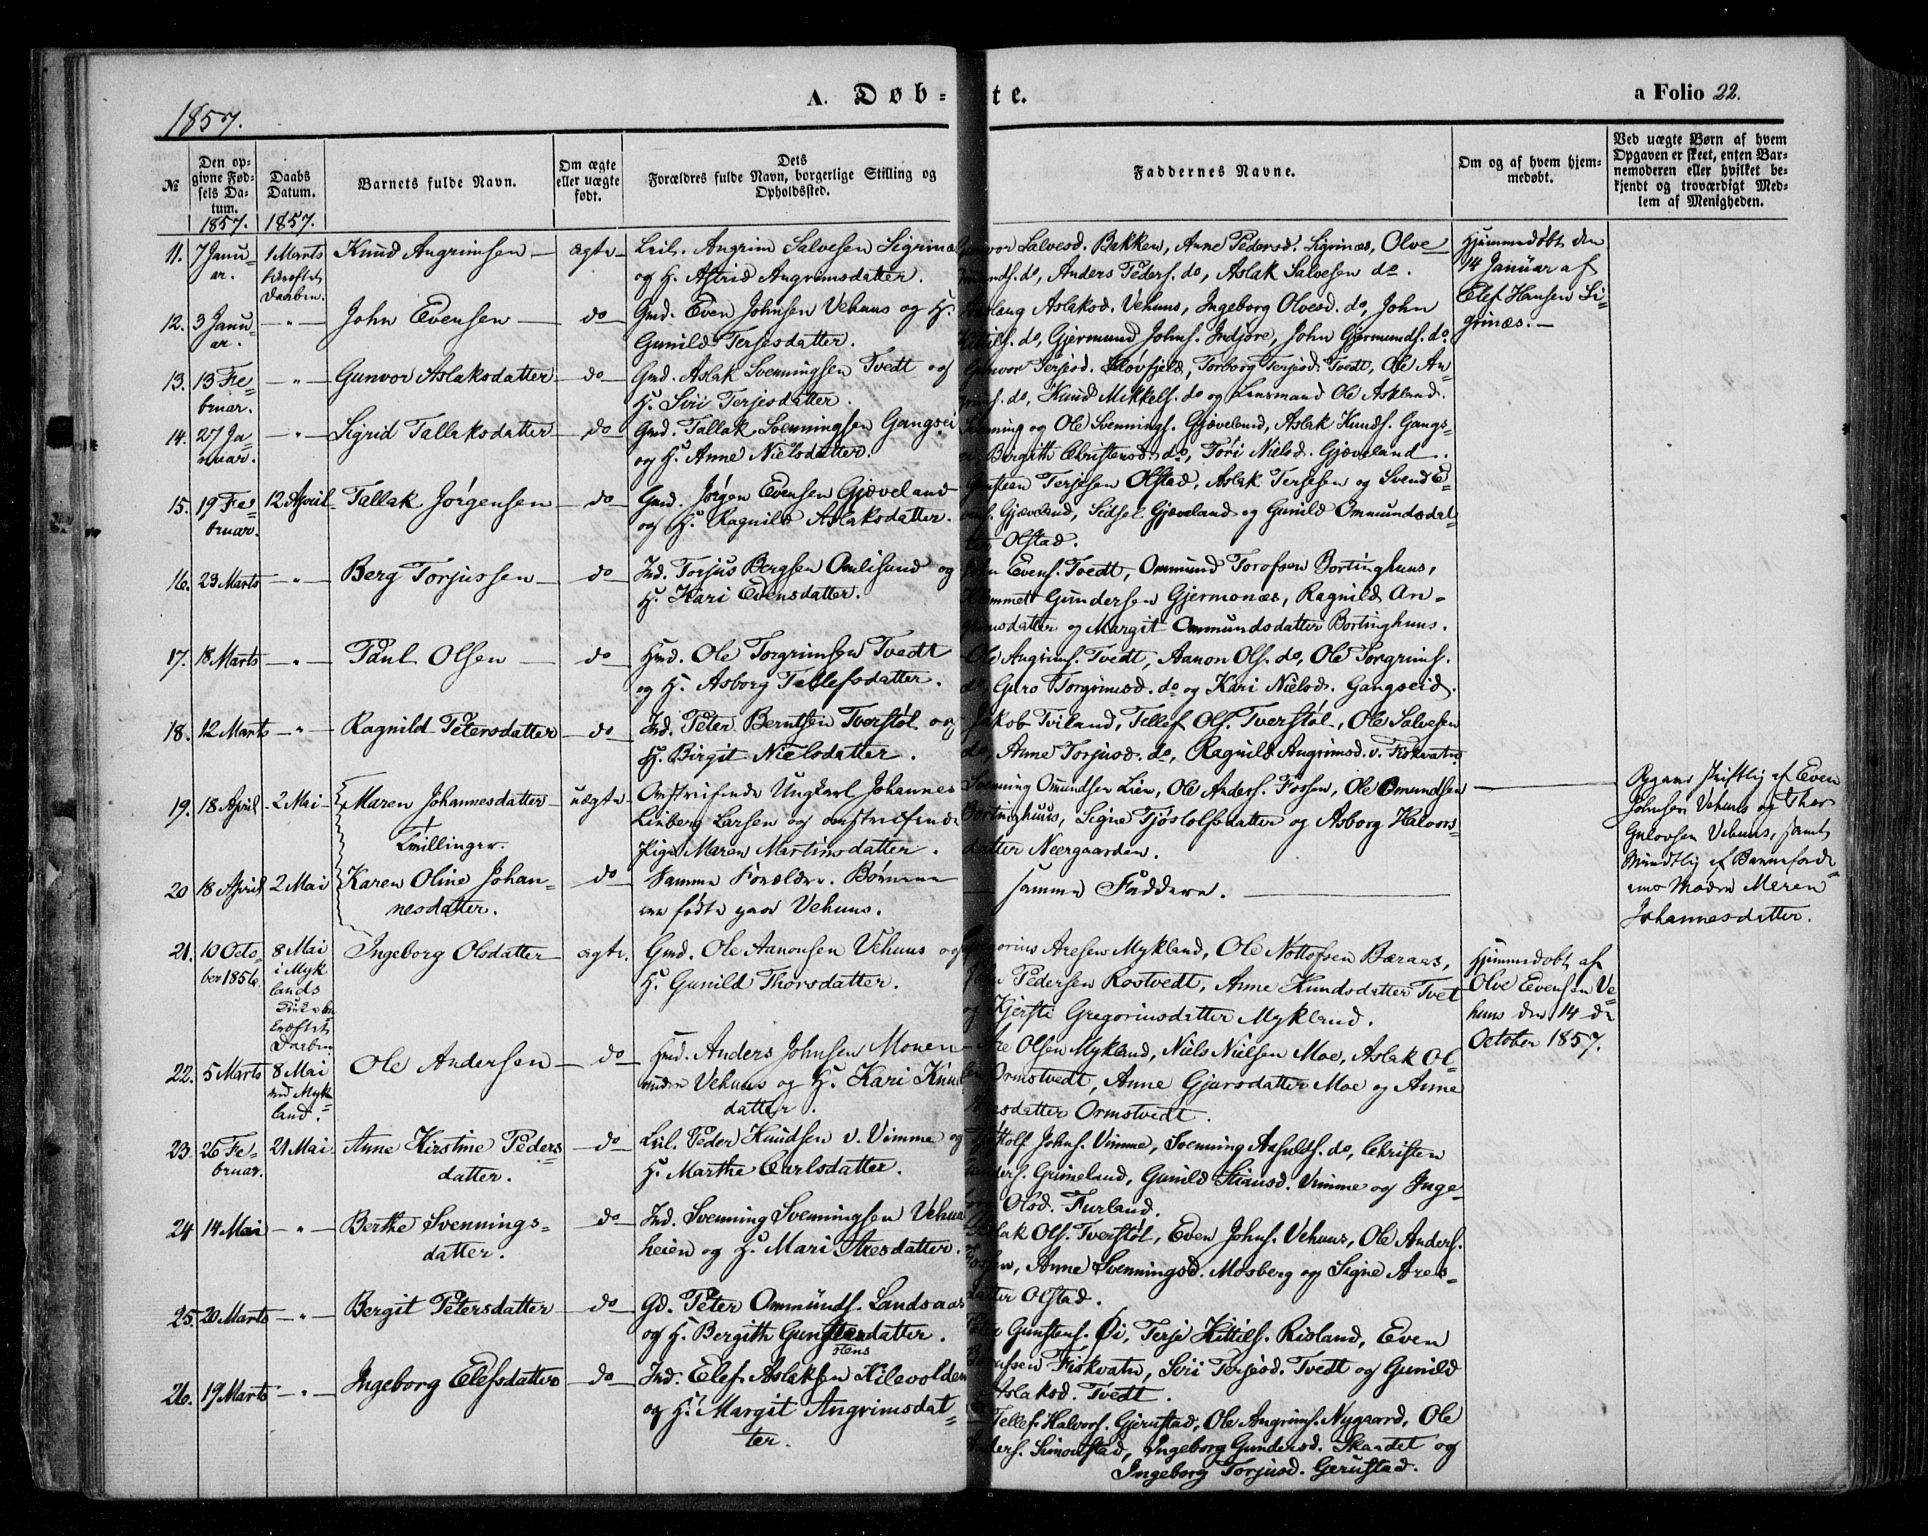 1857.
A. Døb-te.
a Folio 22.
№
Den opgivne Fødsels Datum.
Daabs Datum.
Barnets fulde Navn.
Om ægte eller uægte født.
Dets Forældres fulde Navn, borgerlige Stilling og Opholdssted.
Faddernes Navne.
Om og af hvem hjemmedøbt.
Ved uægte Børn af hvem Opgaven er skeet, enten Barnemoderen eller hvilket bekjendt og troværdigt Medlem af Menigheden.
1857. 1857.
11. 7 Januar. 1 Marts bekræftet Daaben. Knud Angrimsen ægte
Angrim Salvesen Sigrinæs
og H. Astrid Angrimsdatter.
Gunvor Salvesd. Bakken, Anne Pedersd. Sigrinæs, Olve
do, Anders Peders. do, Aslak Salvesen do.
Hjemmedøbt den
14 Januar af
Elef Hansen Si-
grinæs.
12. 3 Januar. " John Evensen do
Gmd. Even Johnsen Vehuus og H.
Gunild Terjesdatter.
Aslaug Aslaksd. Vehuus, Ingeborg Olvesd. do, John
do, Gjermund Johns. Indjore, John Gjermunds. do.
13. 13 Februar. " Gunvor Aslaksdatter do
Gmd. Aslak Svenningsen Tvedt og
H. Siri Terjesdatter.
Gunvor Terjesd. Hovfjeld, Torborg Terjesd. Tvedt, Ole An-
grims. do, Knud Mikkels. do og Lensmand Ole Askland.
14. 27 Januar. " Sigrid Tallaksdatter do
Gmd. Tallak Svenningsen Gangsei
og H. Anne Nielsdatter.
Svenning og Ole Svennings. Gjæveland, Aslak Knuds. Gangs-
ei, Bergith Christensd. do, Tori Nielsd. Gjæveland.
15. 19 Februar. 12 April Tallak Jørgensen do
Gmd. Jørgen Evensen Gjæveland
og H. Ragnild Aslaksdatter.
Gunsteen Terjesen Olstad, Aslak Terjesen og Svend E-
vens. Gjæveland, Sidsel Gjæveland og Gunild Ommundsdat-
ter Olstad.
16. 23 Marts " Berg Torjussen do
Ind. Torjus Bergsen Omlisund og
H. Kari Evensdatter.
John Evens. Tvedt, Ommund Torofsen Bortinghuus,
Klemmet Gundersen Gjermonæs, Ragnild An-
grimsdatter og Margit Ommundsdatter Bortinghuus.
17. 18 Marts " Paul Olsen do
Hmd. Ole Torgrimsen Tvedt
og H. Asborg Tellefsdatter.
Ole Angrims. Tvedt, Aanon Ols. do, Ole Torgrims.
do, Guro Torgrimsd. do og Kari Nielsd. Gangseid.
18. 12 Marts " Ragnild Petersdatter do
Ind. Peter Berntsen Tverstøl og
H. Birgit Nielsdatter.
Jakob Tviland, Tellef Ols. Tverstøl, Ole Salvesen
do, Anne Torjusd. do, Ragnild Angrimsd. v. Fiskvatn
19. 18 April 2 Mai Maren Johannesdatter uægte
Tvillinger.
Omstreifende Ungkarl Johannes
Linberg Larsen og omstreifende
Pige Maren Martinsdatter.
Svenning Omundsen Lien, Ole Anders. Fossen, Ole Omundsen
Bortinghuus, Signe Tjostolfsdatter og Asborg Halvors-
datter Neergaarden.
Opgave skriftlig af Even
Johnsen Vehuus og Thor
Vehuus, samt
Mundtlig af Barnefode
Moder Meren
Johannesdatter.
20 18 April 2 Mai Karen Oline Johan-
nesdatter. do
Samme Forældre. Børnene
ere fødte paa Vehuus.
samme Faddere.
21. 10 October 1856. 8 Mai i Myklands Kirke bekræftet Daaben Ingeborg Olsdatter ægte.
Gmd. Ole Aanonsen Vehuus og
H. Gunild Thorsdatter.
Gregorius Aresen Mykland, Ole Nottofsen Bæraas,
Pedersen Rostvedt, Anne Knudsdatter Tvet
og Kjersti Gregoriusdatter Mykland.
Hjemmedøbt af
Olve Evensen Ve-
huus den 14 de
October 1857.
22. 5 Marts 8 Mai ved Mykland. Ole Andersen do
Hmd. Anders Johnsen Monen
nedre Vehuus og H. Kari Knuds
datter.
Are Olsen Mykland, Niels Nielsen Moe, Aslak Ol-
sen Ormstvedt, Anne Gjursdatter Moe og Anne
datter Ormstvedt.
23. 26 Februar. 21 Mai Anne Kirstine Peders
datter. do
Peder Knudsen v. Vimme og
H. Marthe Carlsdatter.
Tjostolf Johns. Vimme, Svenning Asfulds. do, Christen
Anders. Grimeland, Gunild Stiansd. Vimme og Inge-
borg Olsd. Furland.
24 14 Mai " Berthe Svennings-
datter. do
Ind. Svenning Svenningsen Vehuus
heien og H. Mari Aresdatter.
Aslak Ols. Tverstøl, Even Johns. Vehuus, Ole Anders.
Fossen, Anne Svenningsd. Mosberg og Signe Ares-
datter Olstad.
25. 20 Marts " Bergit Petersdatter do
Gd. Peter Ommunds. Landsaas
og H. Bergith Gunstensdatter.
Gunstens. Øi, Terje Kittils. Risland, Even
Fiskvatn, Siri Terjesd. Tvedt og Gunild
Aslaksd. Tvedt.
26. 19 Marts " Ingeborg Elefsdatter do
Ind. Elef Aslaksen Kilevolden
og H. Margit Angrimsdat-
ter.
Tellef Halvors. Gjerustad, Ole Angrims. Nygaard, Ole
Anders. Simonstad, Ingeborg Gundersd. Skaadet og
Ingeborg Torjusd. Gerustad.